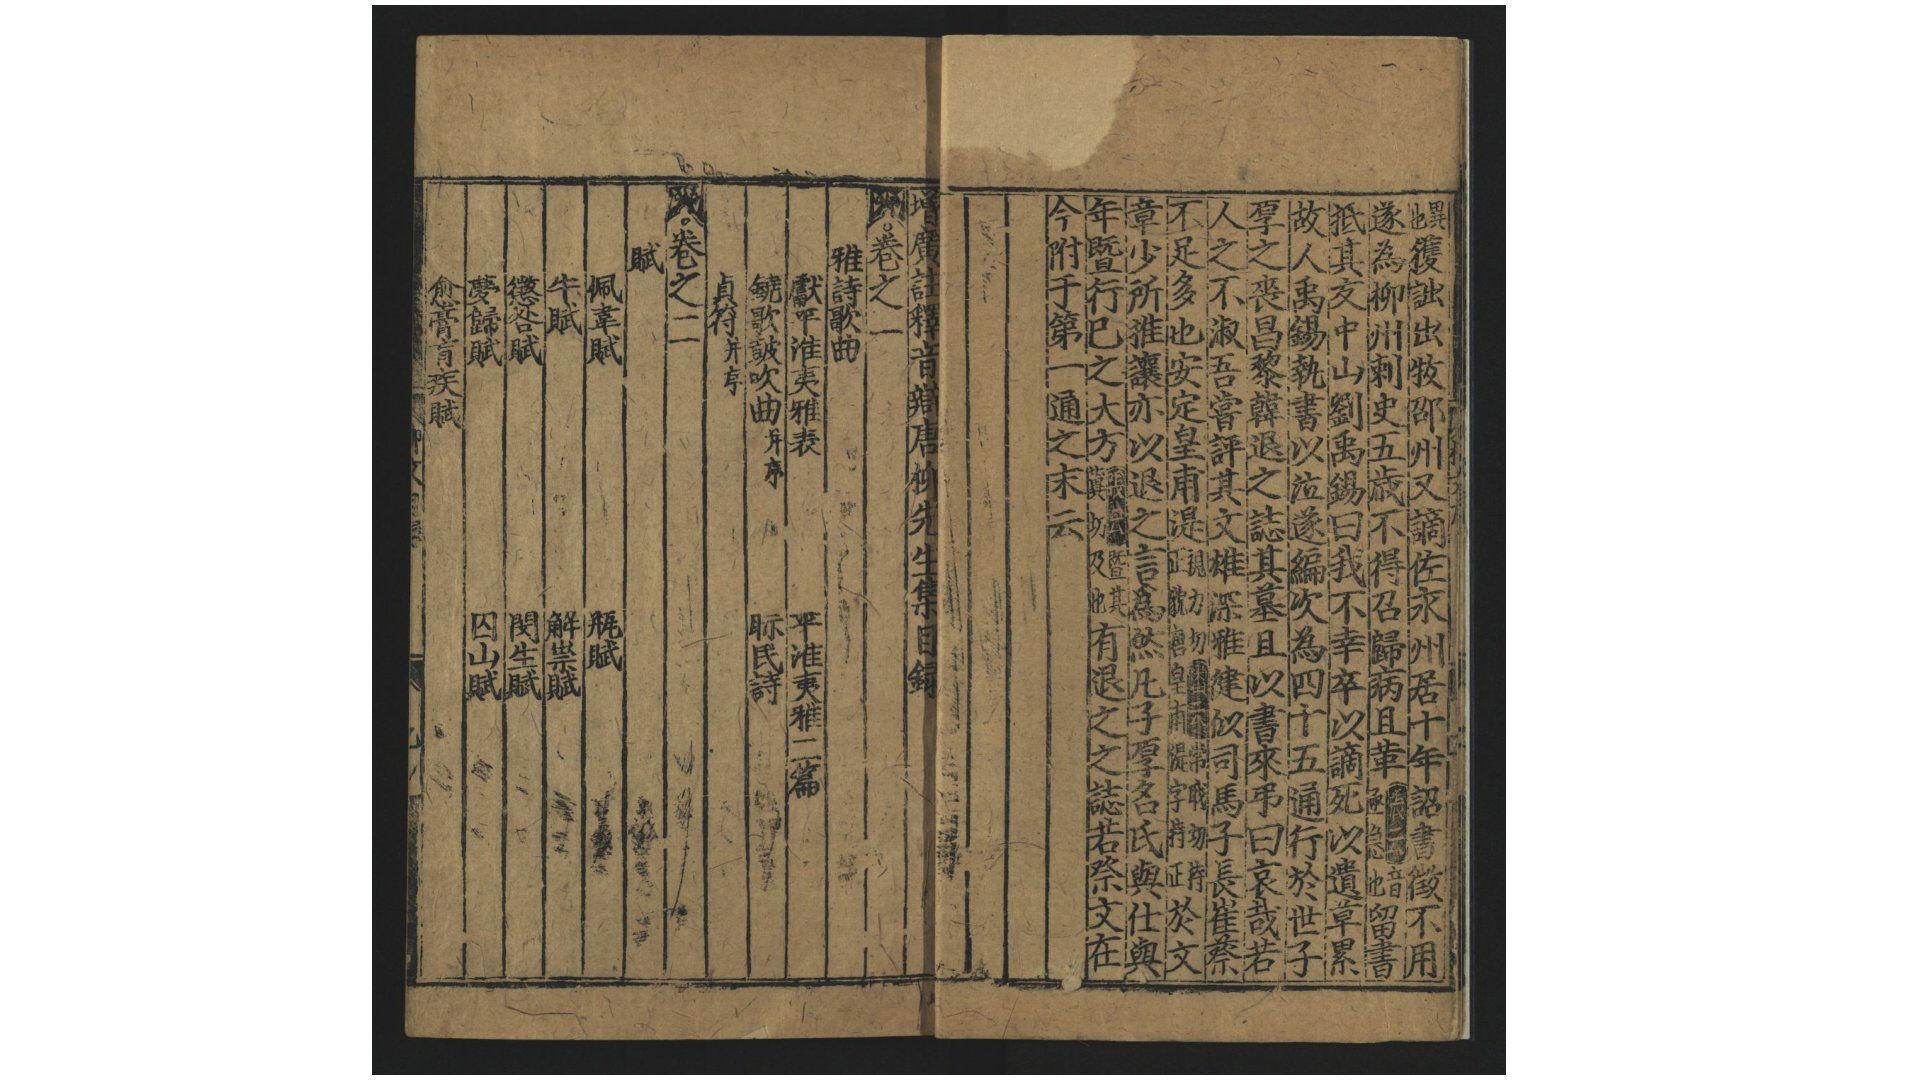 異也獲詘出牧邵州又謫佐永州居十年詔書徵不用
遂為柳州刺史五歲不得召歸病且革音亟急也留書
抵其友中山劉禹錫曰我不幸卒以謫死以遺草累
故人禹錫執書以泣遂編次為四十五通行於世子
厚之喪昌黎韓退之誌其墓且以書來弔曰哀哉若
人之不淑吾嘗評其文雄深雅健似司馬子長崔蔡
不足多也安定皇甫湜視力切常職切持正號唐皇甫湜字持正於文
章少所推讓亦以退之言為然凡子厚名氏與仕與
年暨行己之大方暨其冀切及也有退之之誌若祭文在
今附于第一通之末云
增廣註釋音辯唐柳先生集目錄
卷之一
雅詩歌曲
獻平淮夷雅表 平淮夷雅二篇
鐃歌皷吹曲并序 眎民詩
貞符并序
卷之二
賦
佩韋賦 瓶賦
牛賦 解祟賦
懲咎賦 閔生賦
夢歸賦 囚山賦
愈膏肓疾賦